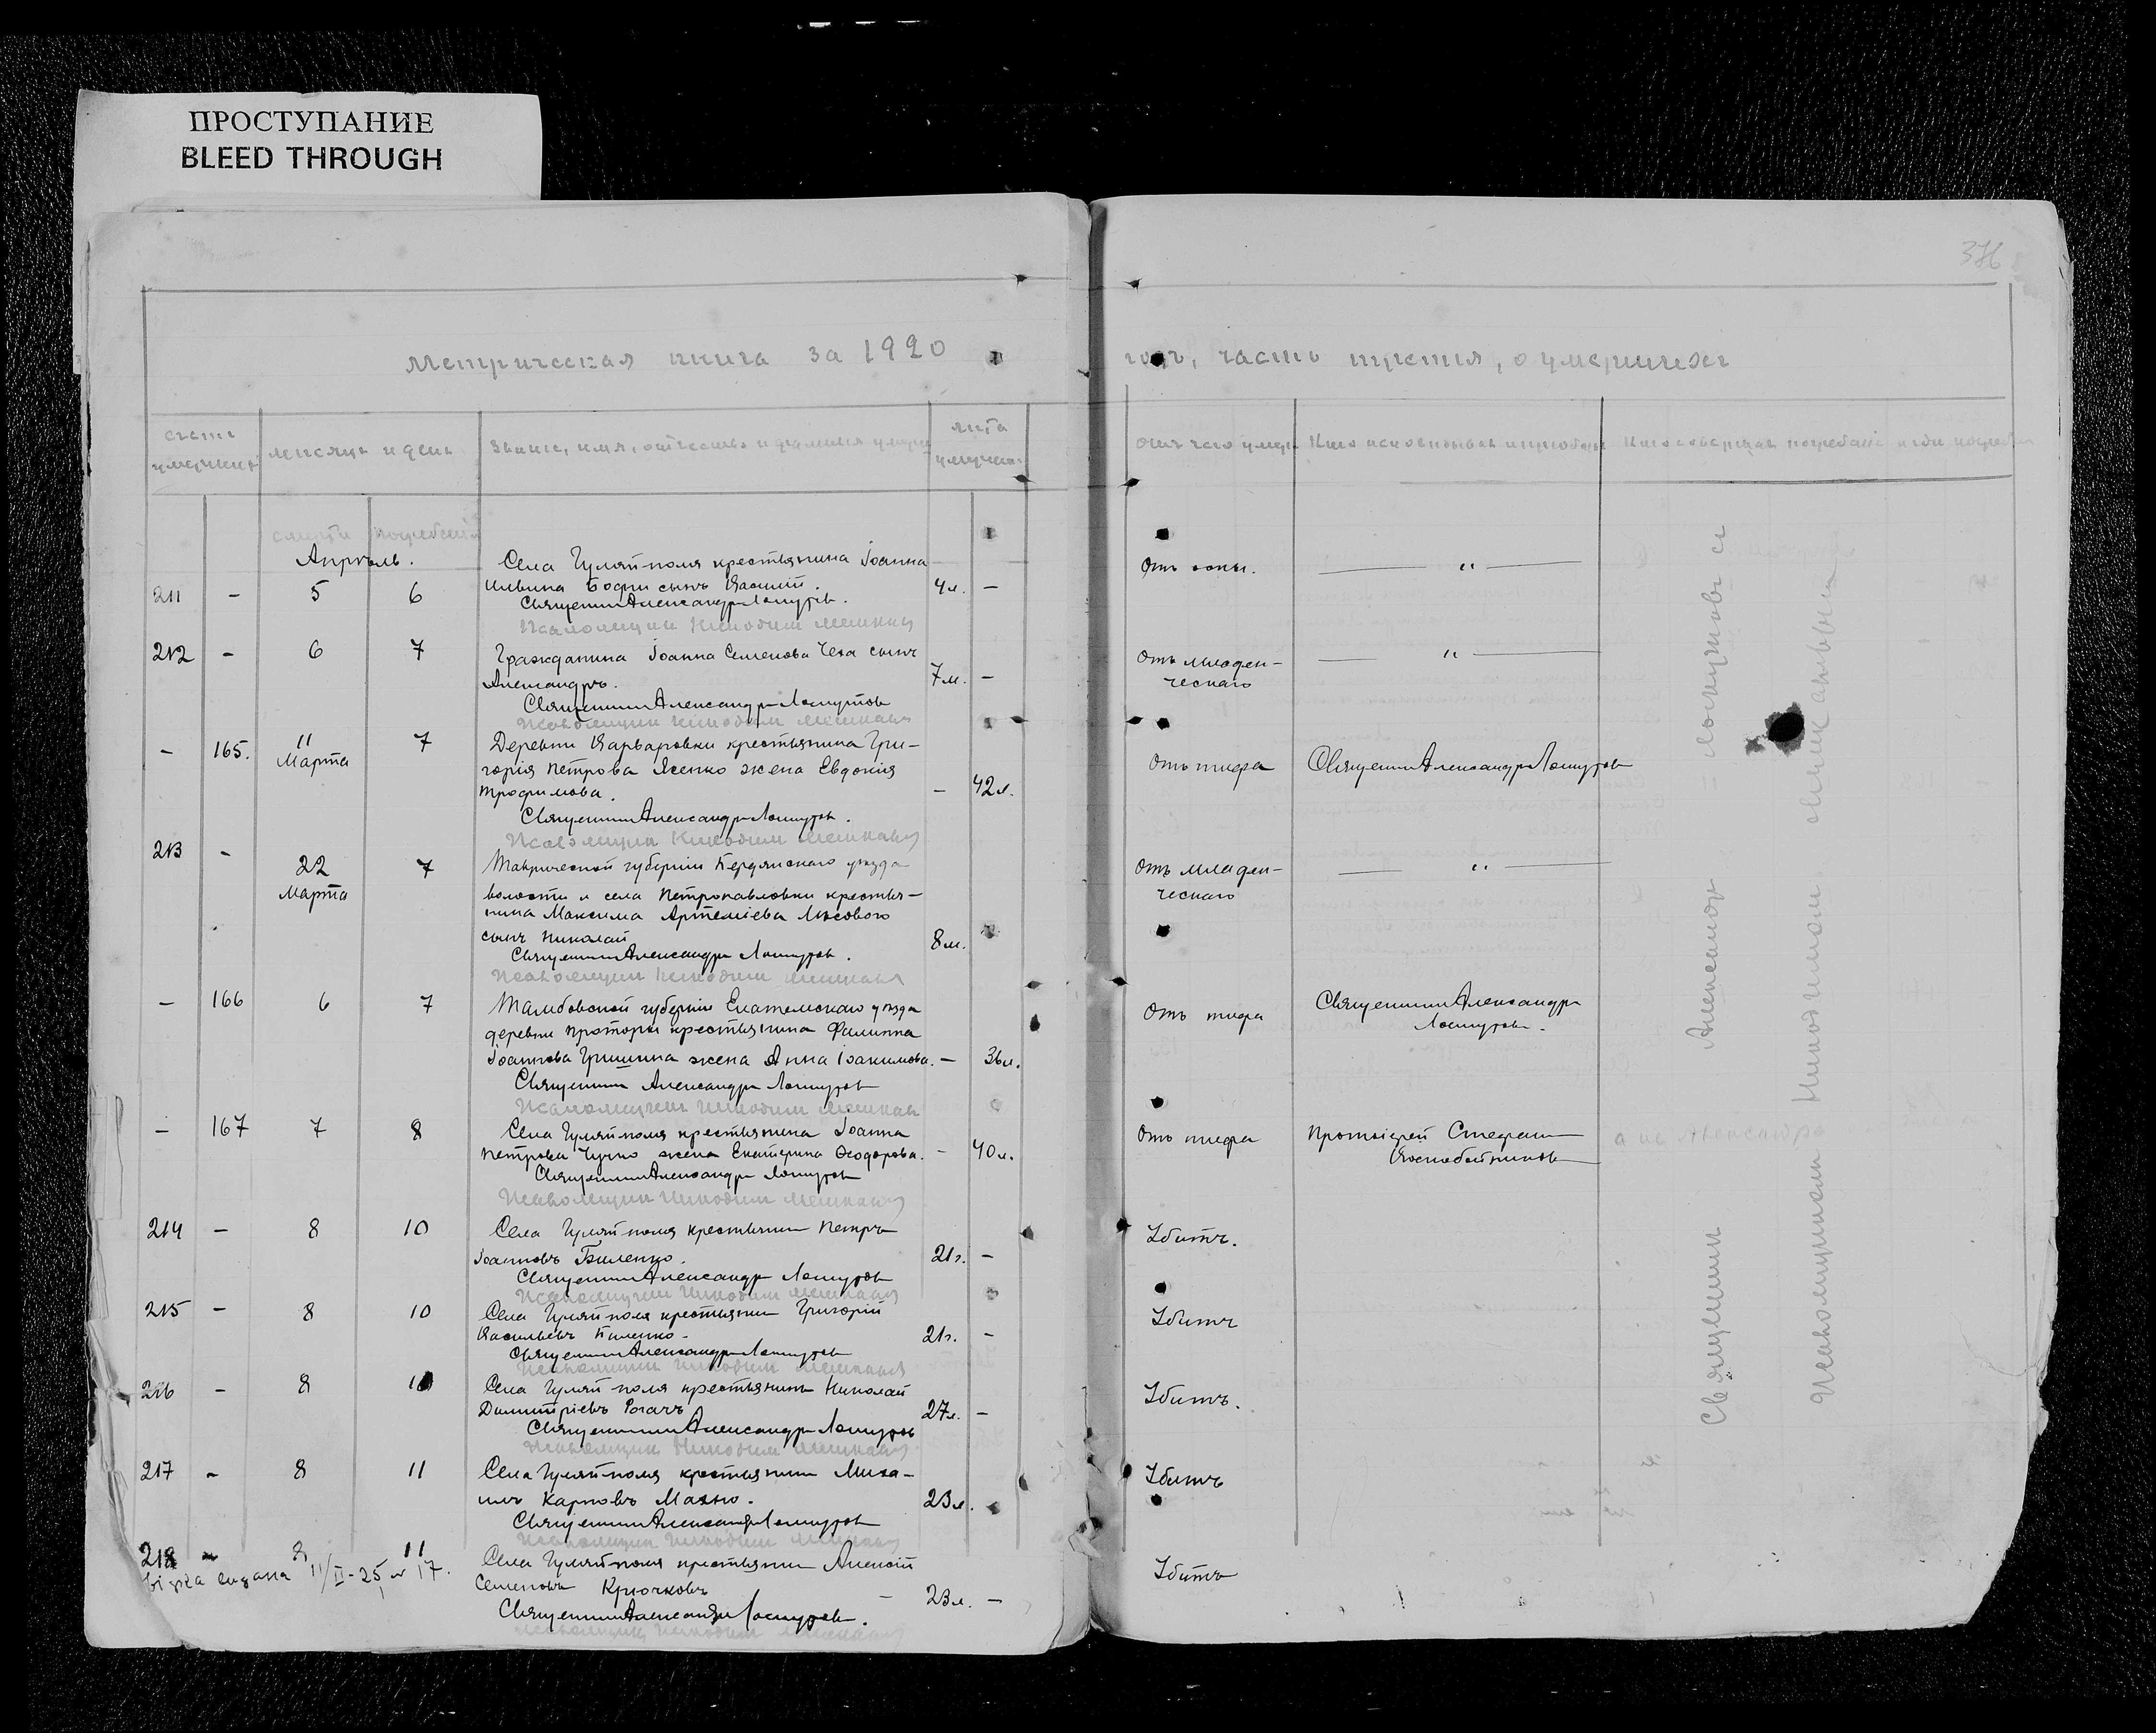 ПРОСТУПАНИЕ
BLEED THROUGH
376
Метрическая книга за 1920
годъ, часть третья, о умершихъ
счетъ умершихъ
месяцъ и день
звание, имя, отчество и фамилия умерш
лета умерших
отъ чего умеръ
Кто исповедывал и приобщал
Кто совершал погребение и где погребен
смерти
погребения
Апрѣль.
211 - 5 6
Села Гуляйполя крестьянина Іоанна
сынъ Василій. 4л. -
Священникъ Александръ Лошуковъ.
Псаломщикъ Никодимъ
Отъ оспы. — „ —
212 - 6 7
Гражданина Іоанна Семенова Чеха сынъ
Александръ. 7м. -
Священникъ Александръ Лошуковъ
Псаломщикъ Никодимъ
Отъ младен-
ческаго — „ —
- 165. 11 Марта 7
Деревни Варваровки крестьянина Гри-
горія Петрова Ясенко жена Евдокія
Трофимова. - 42л.
Священникъ Александръ Лошуковъ.
Псаломщикъ Никодимъ
Отъ тифа Священникъ Александръ Лошуковъ
213 - 22 Марта 7
Таврической губерніи Бердянскаго уѣзда
волости и села Петропавловки крестья-
нина Максима Артеміева Лѣсового
сынъ Николай 8м.
Священникъ Александръ Лошуковъ.
Псаломщикъ Никодимъ
Отъ младен-
ческаго — „ —
- 166 6 7
Тамбовской губерніи Елатомскаго уѣзда
деревни крестьянина Филиппа
Іоаннова Гришина жена Анна Іоакимова. - 36л.
Священникъ Александръ Лошуковъ
Псаломщикъ Никодимъ
Отъ тифа Священникъ Александръ
Лошуковъ.
- 167 7 8
Села Гуляйполя крестьянина Іоанна
Петрова жена Екатерина Ѳеодорова. - 40л.
Священникъ Александръ Лошуковъ
Псаломщикъ Никодимъ
Отъ тифа Протоіерей Стефанъ
Воскобойниковъ
214 - 8 10
Села Гуляйполя крестьянинъ Петръ
Іоанновъ Биленко. 21г. -
Священникъ Александръ Лошуковъ
Псаломщикъ Никодимъ
Убитъ.
215 - 8 10
Села Гуляйполя крестьянинъ Григорій
Васильевъ Биленко. 21г. -
Священникъ Александръ Лошуковъ
Псаломщикъ Никодимъ
Убитъ
216 - 8 10
Села Гуляйполя крестьянинъ Николай
Димитріевъ Рогачъ 27л. -
Священникъ Александръ Лошуковъ
Псаломщикъ Никодимъ
Убитъ.
217 - 8 11
Села Гуляйполя крестьянинъ Миха-
илъ Карповъ Махно. 23л. -
Священникъ Александръ Лошуковъ
Псаломщикъ Никодимъ
Убитъ
218 - 8 11
Села Гуляйполя крестьянинъ Алексій
Семеновъ Крючковъ 23л. -
Священникъ Александръ Лошуковъ.
Псаломщикъ Никодимъ
Убитъ
11/II-25 № 17.
Священникъ Александръ Лошуковъ съ
Псаломщикомъ Никодимомъ